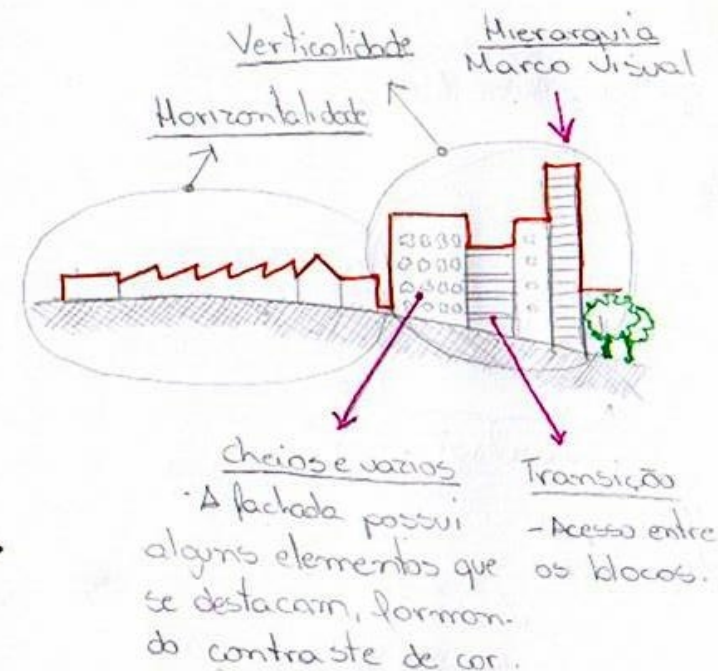 Verticalidade
Hierarquia
Marco Visual
Horizontalidade
Cheios e vazios
· A fachada possui
alguns elementos que
se destacam, forman-
do contraste de cor.
Transição
- Acesso entre
os blocos.